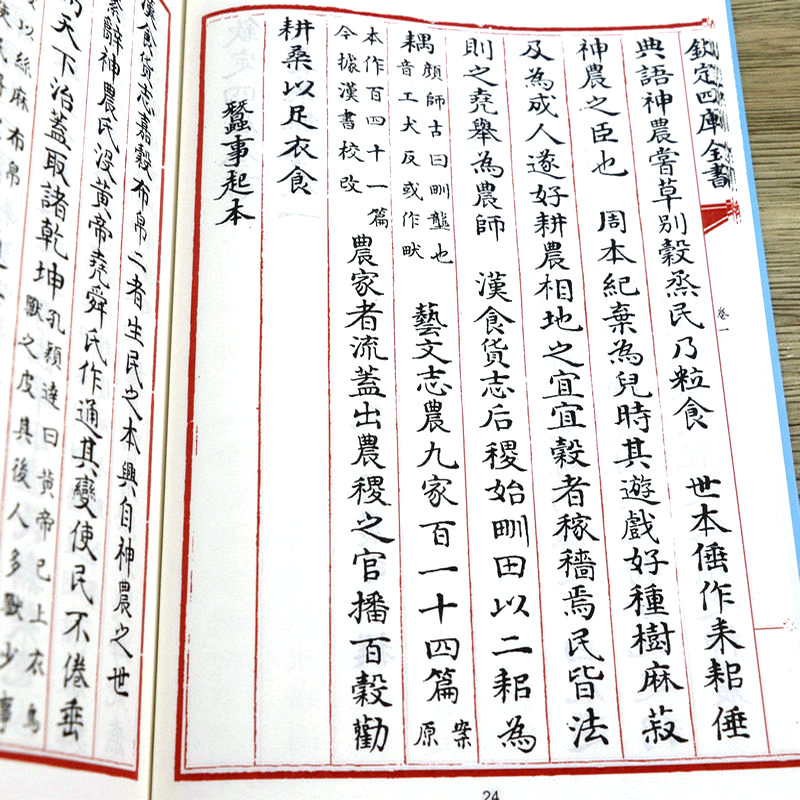 欽定四庫全書
卷一
典語神農嘗草別穀烝民乃粒食 世本倕作耒耜倕
神農之臣也 周本紀棄為兒時其遊戲好種樹麻菽
及為成人遂好耕農相地之宜宜穀者稼穡焉民皆法
則之堯舉為農師 漢食貨志后稷始甽田以二耜為
耦
顔師古曰甽壟也
音工犬反或作畎
藝文志農九家百一十四篇
案
原
本作百四十一篇
今據漢書校改
農家者流蓋出農稷之官播百穀勸
耕桑以足衣食
蠶事起本
24
漢食貨志嘉穀布帛二者生民之本興自神農之世
繫辭神農氏沒黃帝堯舜氏作通其變使民不倦垂
天下治蓋取諸乾坤
孔穎達曰黄帝已上衣鳥
獸之皮其後人多獸少事
以絲麻布帛